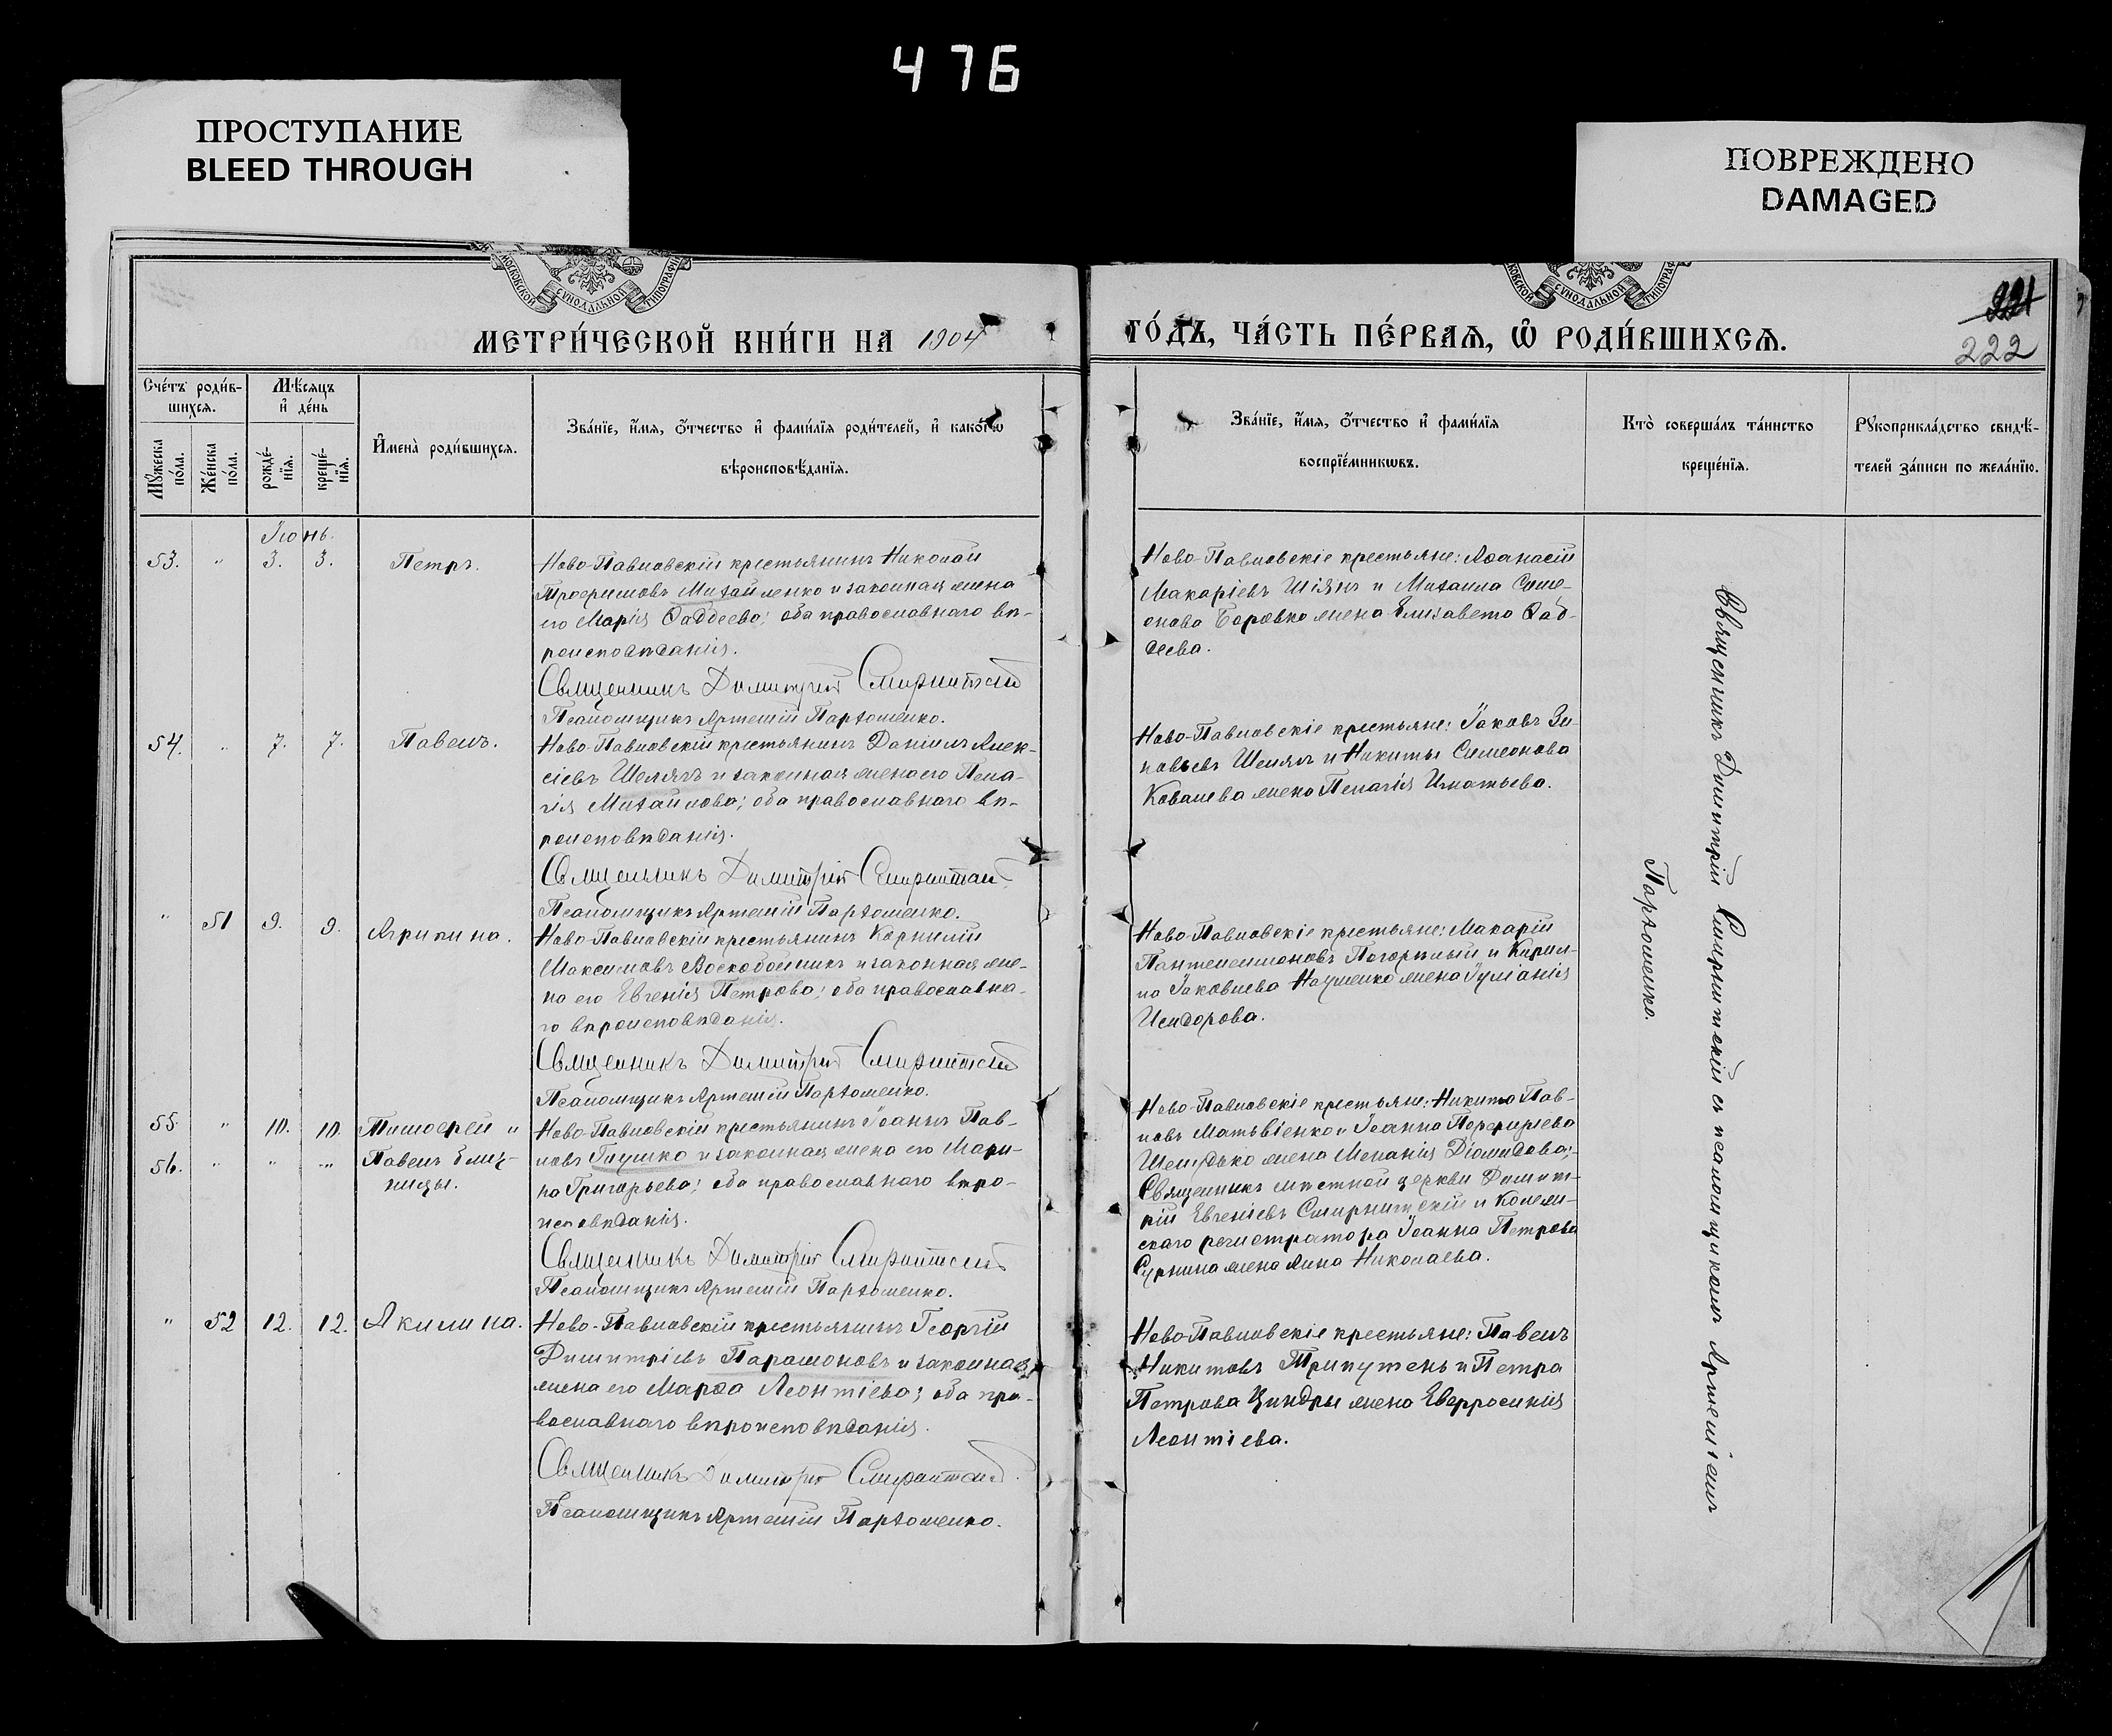 476
ПРОСТУПАНИЕ
BLEED THROUGH
ПОВРЕЖДЕНО
DAMAGED
МОСКОВСКОЙ СѴНОДАЛЬНОЙ ТИПОГРАФІИ
СѴНОДАЛЬНОЙ
221
222
МЕТРИ́ЧЕСКОЙ КНИ́ГИ НА 1904
ГО́ДЪ, ЧА́СТЬ ПЕ́РВАЯ, Ѡ҆ РОДИ́ВШИХСЯ.
Сче́тъ роди́в-
шихся.
Мѣ́сяцъ
и҆ де́нь
Мꙋ́жеска по́ла.
Же́нска по́ла.
рожде́-
нїя.
креще́-
нїя.
И҆мена̀ роди́вшихся.
Зва́нїе, и҆́мя, ѻ҆́тчество и҆ фами́лїя роди́телей, и҆ како́гѡ
вѣроисповѣ́данїя.
Зва́нїе, и҆́мя, ѻ҆́тчество и҆ фами́лїя
воспрїе́мникѡвъ.
Кто̀ соверша́лъ та́инство
креще́нїя.
Рꙋкоприкла́дство свидѣ́-
телей за́писи по жела́нїю.
Іюнь.
53. " 3. 3. Петръ.
Ново-Павловскій крестьянинъ Николай
Трофимовъ Михайленко и законная жена
его Марія Ѳаддеева; оба православнаго вѣ-
роисповѣданія.
Священникъ Димитрій Смирнитскій
Псаломщикъ Артемій Пархоменко.
Ново-Павловскіе крестьяне: Аѳанасій
Макаріевъ Шіянъ и Михаила Симе-
онова Боровко жена Елизавета Ѳад-
деева.
54. " 7. 7. Павелъ.
Ново-Павловскій крестьянинъ Даніилъ Алек-
сіевъ Шемягъ и законная жена его Пела-
гія Михайлова; оба православнаго вѣ-
роисповѣданія.
Священникъ Димитрій Смирнитскій
Псаломщикъ Артемій Пархоменко.
Ново-Павловскіе крестьяне: Іаковъ Зи-
новьевъ и Никиты Симеонова
Ковалева жена Пелагія Игнатьева.
" 51 9. 9. Агрипина.
Ново-Павловскій крестьянинъ Корнилій
Максимовъ Воскобойникъ и законная же-
на его Евгенія Петрова; оба православна-
го вѣроисповѣданія.
Священникъ Димитрій Смирнитскій
Псаломщикъ Артемій Пархоменко.
Ново-Павловскіе крестьяне: Макарій
Пантелеимоновъ Погорѣлый и Кирил-
ла Іаковлева Науменко жена Іуліанія
Исидорова.
55. " 10. 10. Тимоѳей и
56. " " " Павелъ близ-
нецы.
Ново-Павловскій крестьянинъ Іоаннъ Пав-
ловъ Глушко и законная жена его Мари-
на Григорьева; оба православнаго вѣро-
исповѣданія.
Священникъ Димитрій Смирнитскій
Псаломщикъ Артемій Пархоменко.
Ново-Павловскіе крестьяне: Никита Пав-
ловъ Матвіенко и Іоанна Порфиріева
жена Меланія Діомидова;
Священникъ мѣстной церкви Димит-
рій Евгеніевъ Смирнитскій и Коллеж-
скаго регистратора Іоанна Петрова
Сурнина жена Анна Николаева.
" 52 12. 12. Акилина.
Ново-Павловскій крестьянинъ Георгій
Димитріевъ Парамоновъ и законная
жена его Марѳа Леонтіева; оба пра-
вославнаго вѣроисповѣданія.
Священникъ Димитрій Смирнитскій
Псаломщикъ Артемій Пархоменко.
Ново-Павловскіе крестьяне: Павелъ
Никитовъ Трипутень и Петра
Петрова Циндры жена Евфросинія
Леонтіева.
Священникъ Димитрій Смирнитскій съ псаломщикомъ Артеміемъ
Пархоменко.